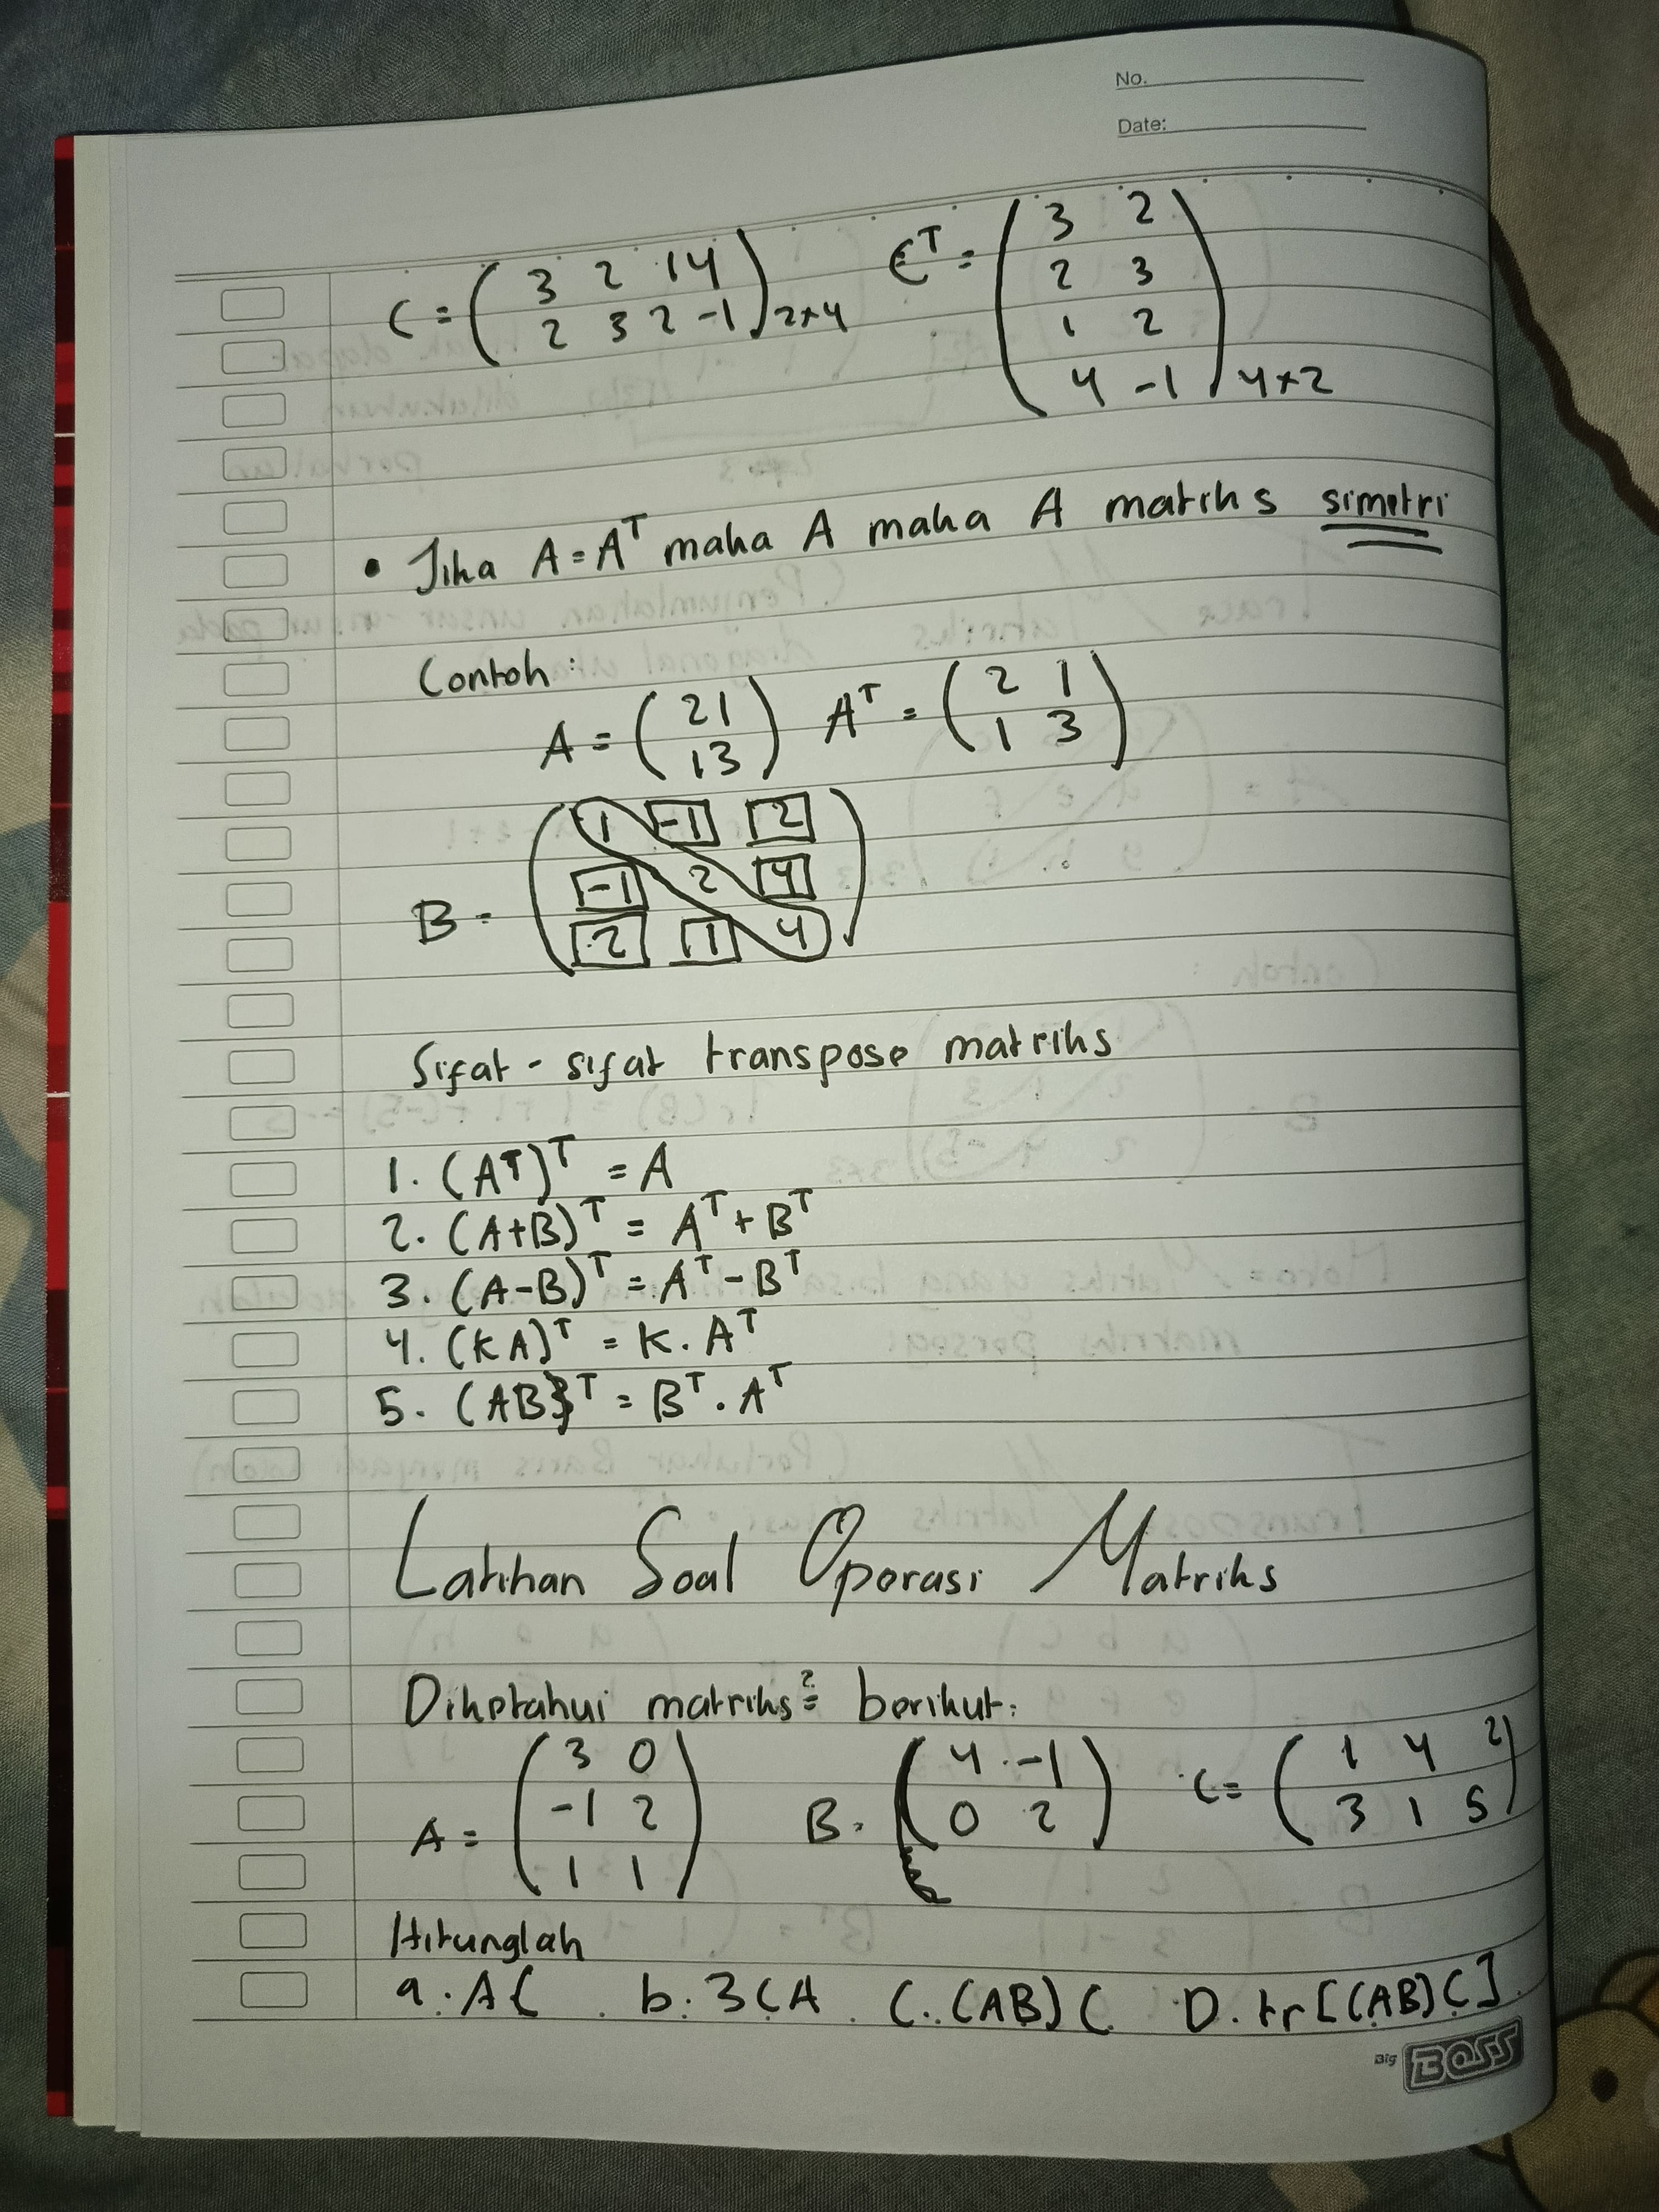 No.
Date:
C = ( 3 2 1 4 CT = ( 3 2
2 3 2 -1 ) 2x4 2 3
1 2
4 -1 ) 4x2
• Jika A = AT maka A maka A matriks simetri
Contoh:
A = ( 2 1 AT = ( 2 1
1 3 ) 1 3 )
B = ( 1 -1 2
-1 2 4
2 1 4 )
Sifat - sifat transpose matriks
1. (AT)T = A
2. (A+B)T = AT + BT
3. (A-B)T = AT - BT
4. (KA)T = K. AT
5. (AB)T = BT . AT
Latihan Soal Operasi Matriks
Diketahui matriks2= berikut:
A = ( 3 0 B = ( 4 -1 C = ( 1 4 2
-1 2 0 2 ) 3 1 5 )
1 1 )
Hitunglah
a. AC b. 3CA C. (AB)C D. tr[(AB)C]
Big BOSS